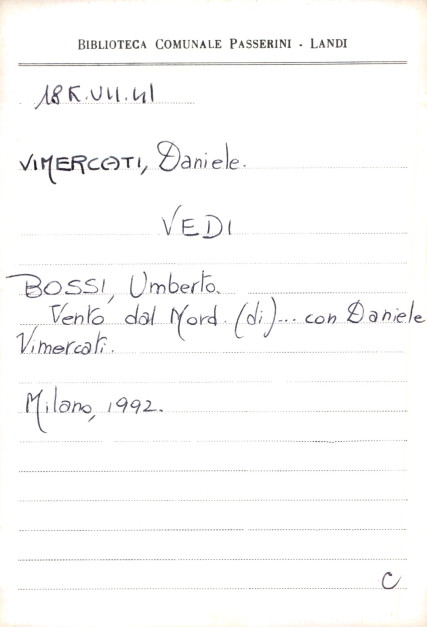 BIBLIOTECA COMUNALE PASSERINI - LANDI
18 K.VII.41
VIMERCATI, Daniele.
VEDI
BOSSI, Umberto.
Vento dal Nord. (di)... con Daniele
Vimercati.
Milano, 1992.
C